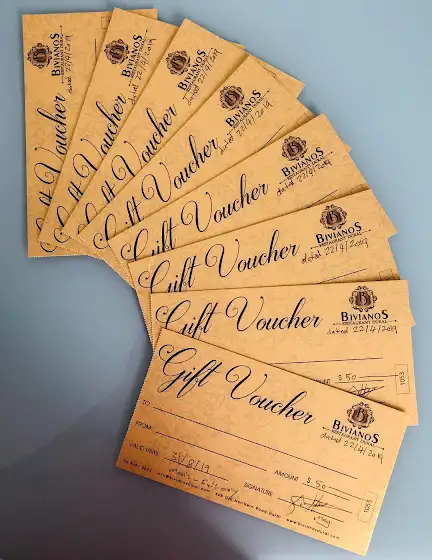 Gift Voucher
BIVIANOS
dated 22/4/2019
Gift Voucher
BIVIANOS
dated 22/4/2019
Gift Voucher
BIVIANOS
dated 22/4/2019
Gift Voucher
BIVIANOS
dated 22/4/2019
Gift Voucher
BIVIANOS
dated 22/4/2019
Gift Voucher
BIVIANOS
RESTAURANT DURAL
dated 22/4/2019
Gift Voucher
BIVIANOS
RESTAURANT DURAL
dated 22/4/2019
$ 50
1053
Gift Voucher
BIVIANOS
RESTAURANT DURAL
dated 22/4/2019
TO:
FROM:
VALID UNTIL
AMOUNT $ 50
SIGNATURE
Old Northern Road Dural